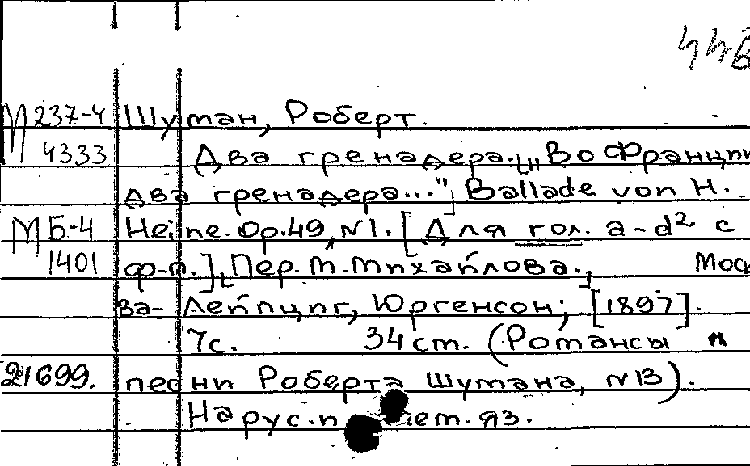 М 237-4 Шуман, Роберт.
4333 Два гренадера. [„Во Франции
два гренадера..."] Ballade von H.
МБ-4 Heine. Op.49, N1. [Для гол. a-d² с
1401 ф-п.], Пер. М. Михайлова., Моск
ва-Лейпциг, Юргенсон, [1897].
7с. 34 cm. (Романсы и
21699. песни Роберта Шумана, N13).
На рус. и яз.